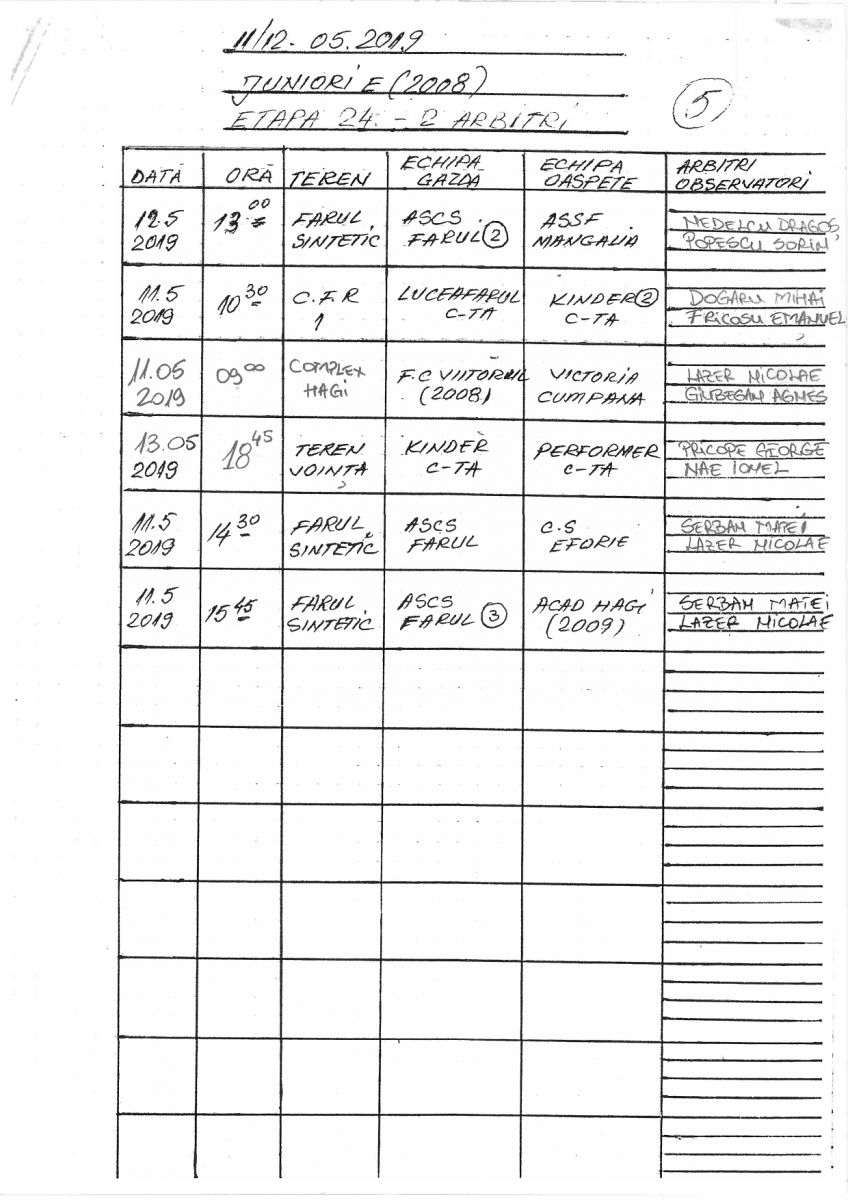 11/12. 05. 2019
JUNIORI E (2008)
ETAPA 24. - 2 ARBITRI
5
DATĂ ORĂ TEREN ECHIPA GAZDĂ ECHIPA OASPETE ARBITRI OBSERVATORI
12.5 2019 13 00 FARUL SINTETIC ASCS FARUL 2 ASSF MANGALIA NEDELCU DRAGOȘ POPESCU SORIN
11.5 2019 10 30 C.F.R 1 LUCEAFARUL C-TA KINDER 2 C-TA DOGARU MIHAI FRICOSU EMANUEL
11.05 2019 09 00 COMPLEX HAGI F.C VIITORUL (2008) VICTORIA CUMPANA LAZER NICOLAE GIUBEGAN AGNES
13.05 2019 18 45 TEREN VOINȚA KINDER C-TA PERFORMER C-TA PRICOPE GEORGE NAE IONEL
11.5 2019 14 30 FARUL SINTETIC ASCS FARUL C.S EFORIE SERBAN MATEI LAZER NICOLAE
11.5 2019 15 45 FARUL SINTETIC ASCS FARUL 3 ACAD HAGI (2009) SERBAN MATEI LAZER NICOLAE